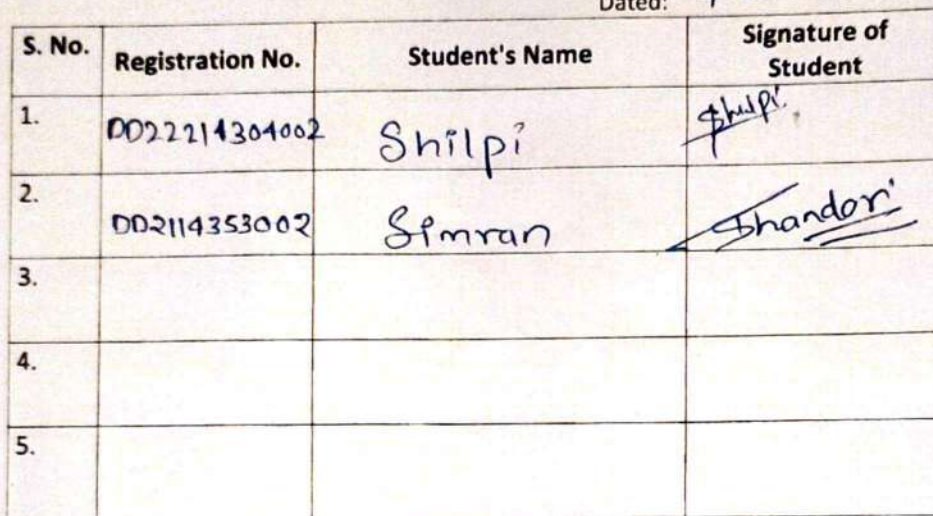 Dated:
S. No. Registration No. Student's Name Signature of Student
1. DD22214304002 Shilpi Shilpi
2. DD2114353002 Simran Bhandari
3.
4.
5.